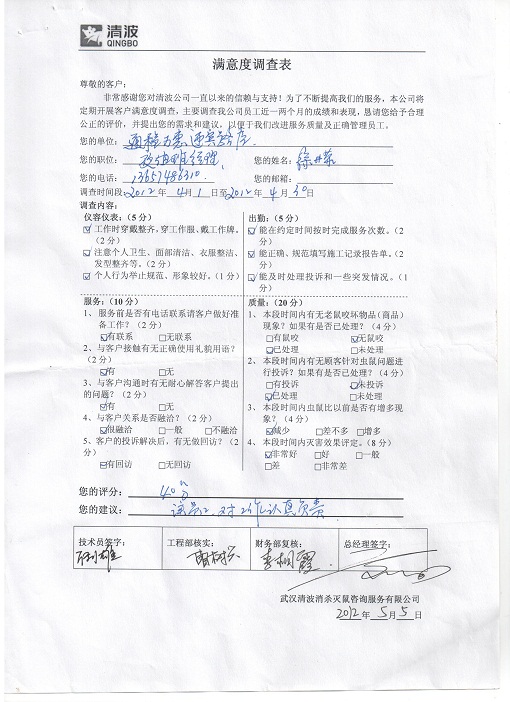 清波
QINGBO
满意度调查表
尊敬的客户：
非常感谢您对清波公司一直以来的信赖与支持！为了不断提高我们的服务，本公司将
定期开展客户满意度调查，主要调查我公司员工近一两个月的成绩和表现，恳请您给予合理
公正的评价，并提出您的需求和建议，以便于我们改进服务质量及正确管理员工。
您的单位：
您的职位： 您的姓名：
您的电话：13657486310. 您的邮箱：
调查时间段：2012 年 4 月 1 日至 2012 年 4 月 30 日
调查内容：
仪容仪表：（5 分） 出勤：（5 分）
☑工作时穿戴整齐，穿工作服、戴工作牌。 ☑能在约定时间按时完成服务次数。（2
（2 分） 分）
☑注意个人卫生、面部清洁、衣服整洁、 ☑能正确、规范填写施工记录报告单。（2
发型整齐等。（2 分） 分）
☑个人行为举止规范、形象较好。（1 分） ☑能及时处理投诉和一些突发情况。（1
分）
服务：（10 分） 质量：（20 分）
1、 服务前是否有电话联系请客户做好准 1、 本段时间内有无老鼠咬坏物品（商品）
备工作？（2 分） 现象？如果有是否已处理？（4 分）
☑有联系 □无联系 □有鼠咬 ☑无鼠咬
2、 与客户接触有无正确使用礼貌用语？ ☑已处理 □未处理
（2 分） 2、 本段时间内有无顾客针对虫鼠问题进
☑有 □无 行投诉？如果有是否已处理？（4 分）
3、 与客户沟通时有无耐心解答客户提出 □有投诉 ☑未投诉
的问题？（2 分） ☑已处理 □未处理
☑有 □无 3、 本段时间内虫鼠比以前是否有增多现
4、 与客户关系是否融洽？（2 分） 象？（4 分）
☑很融洽 □一般 □不融洽 ☑减少 □差不多 □增多
5、 客户的投诉解决后，有无做回访？（2 4、 本段时间内灭害效果评定。（8 分）
分） ☑非常好 □好 □一般
☑有回访 □无回访 □差 □非常差
您的评分： 40分
您的建议： 对工作认真负责
技术员签字： 工程部核实： 财务部复核： 总经理签字：
武汉清波消杀灭鼠咨询服务有限公司
2012 年 5 月 5 日